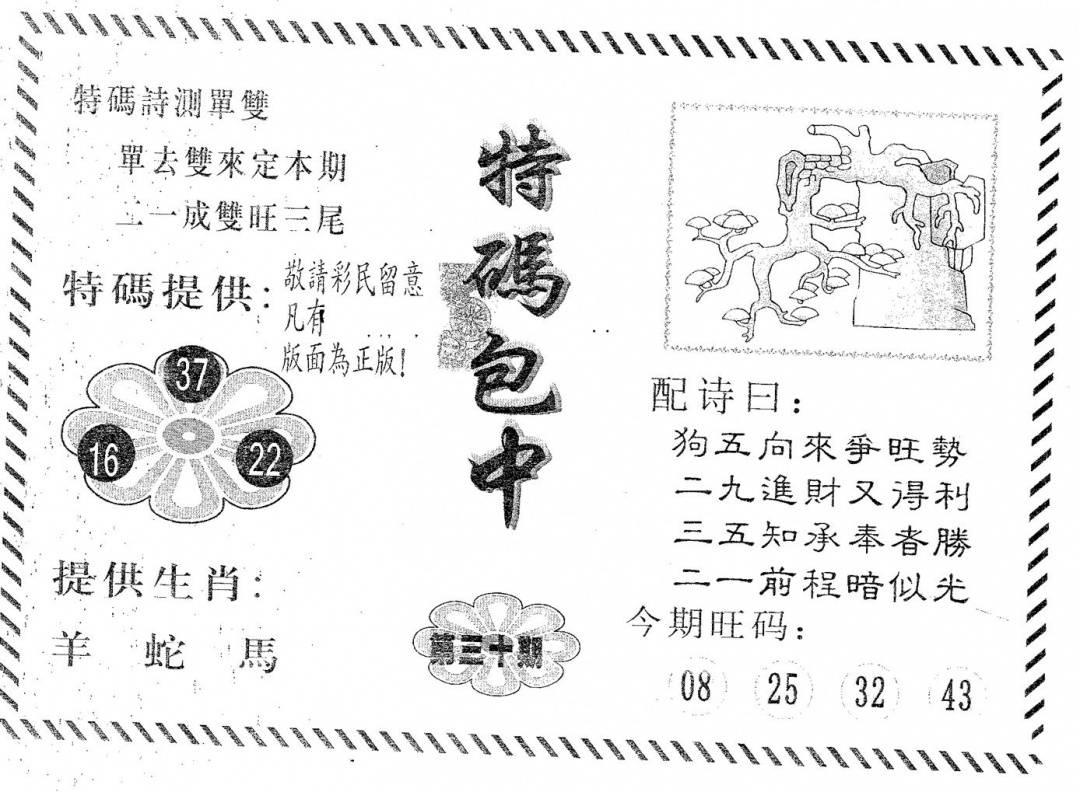 特碼詩測單雙
單去雙來定本期
二一成雙旺三尾
特碼提供:
敬請彩民留意
凡有 ......
版面為正版!
37
16
22
提供生肖:
羊 蛇 馬
特碼包中
第三十期
配诗曰:
狗五向來爭旺勢
二九進財又得利
三五知承奉者勝
二一前程暗似光
今期旺码:
08 25 32 43